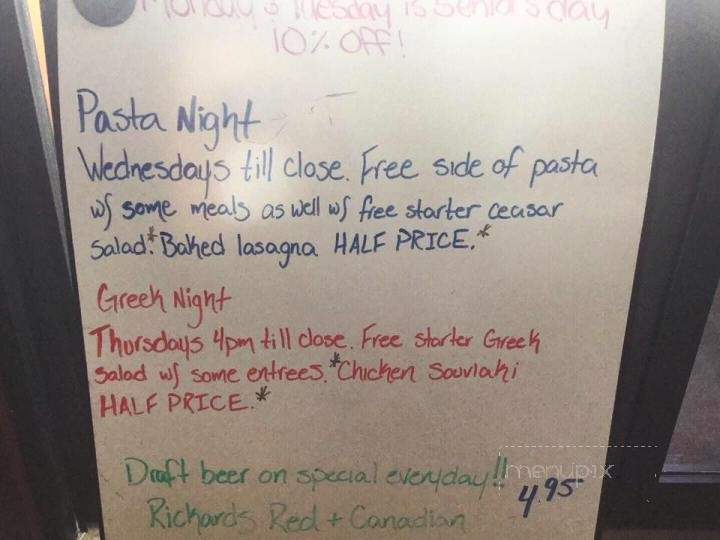 Monday & Tuesday is Seniors day
10% OFF!
Pasta Night
Wednesdays till close. Free side of pasta
w/ some meals as well w/ free starter ceasar
salad.* Baked lasagna HALF PRICE.*
Greek Night
Thursdays 4pm till close. Free starter Greek
salad w/ some entrees.* Chicken Souvlaki
HALF PRICE.*
Draft beer on special everyday!! 4.95
Rickards Red + Canadian
menupix